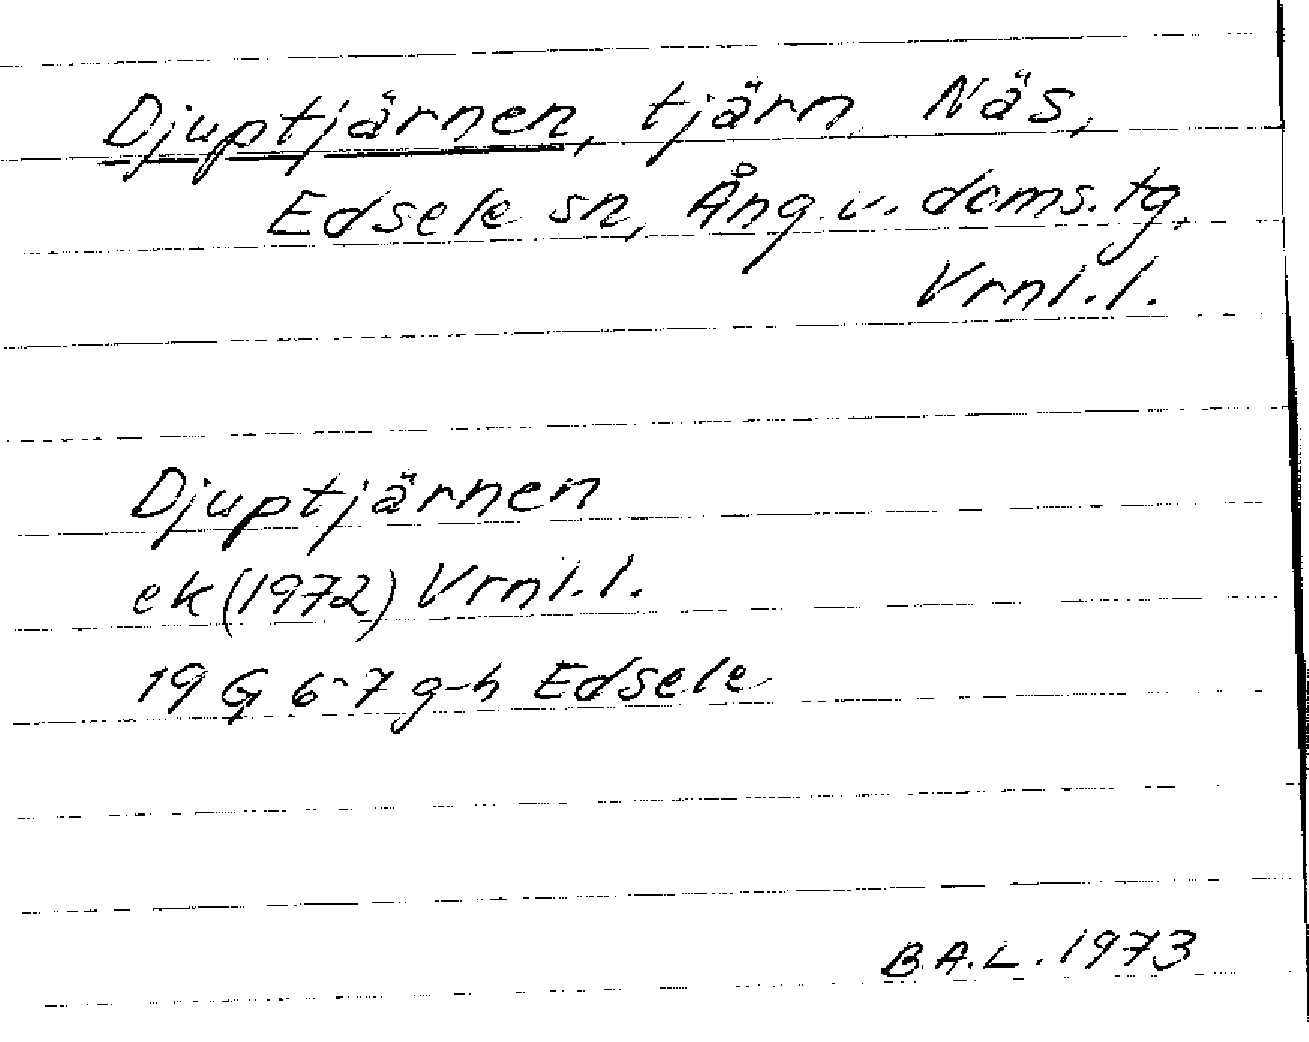 Djuptjärnen, tjärn, Näs,
Edsele sn, Ång. v. doms. tg,
Vrnl. l.
Djuptjärnen
ek (1972) Vrnl. l.
19 G 6-7 g-h Edsele
B.A.L. 1973